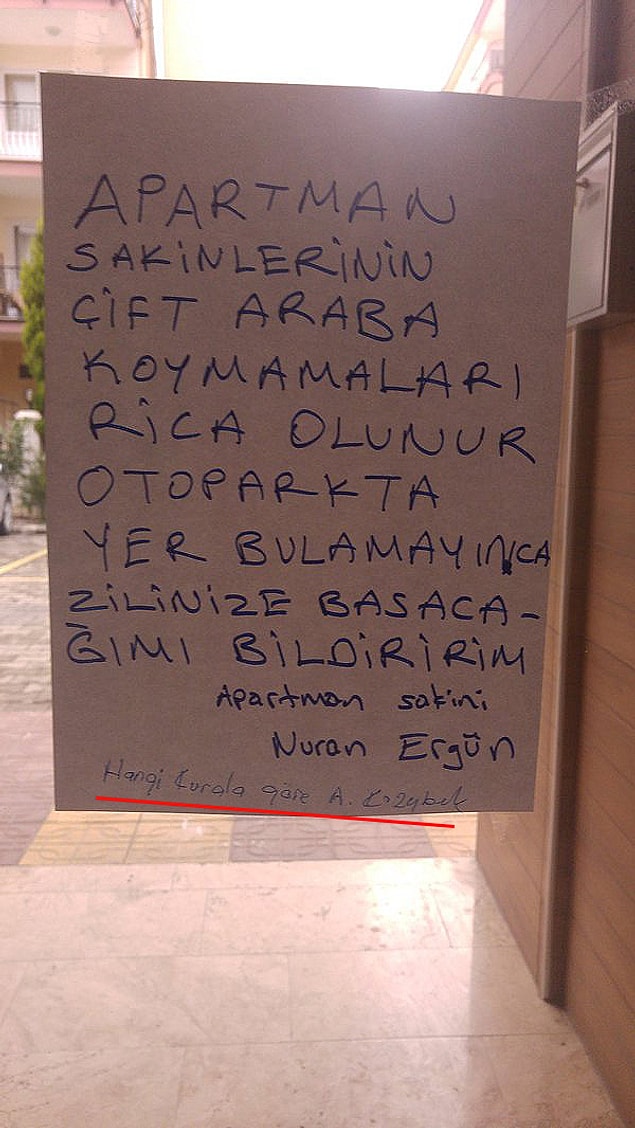 APARTMAN
SAKİNLERİNİN
ÇİFT ARABA
KOYMAMALARI
RİCA OLUNUR
OTOPARKTA
YER BULAMAYINCA
ZİLİNİZE BASACA-
ĞIMI BİLDİRİRİM
Apartman sakini
Nuran Ergün
Hangi kurala göre A.